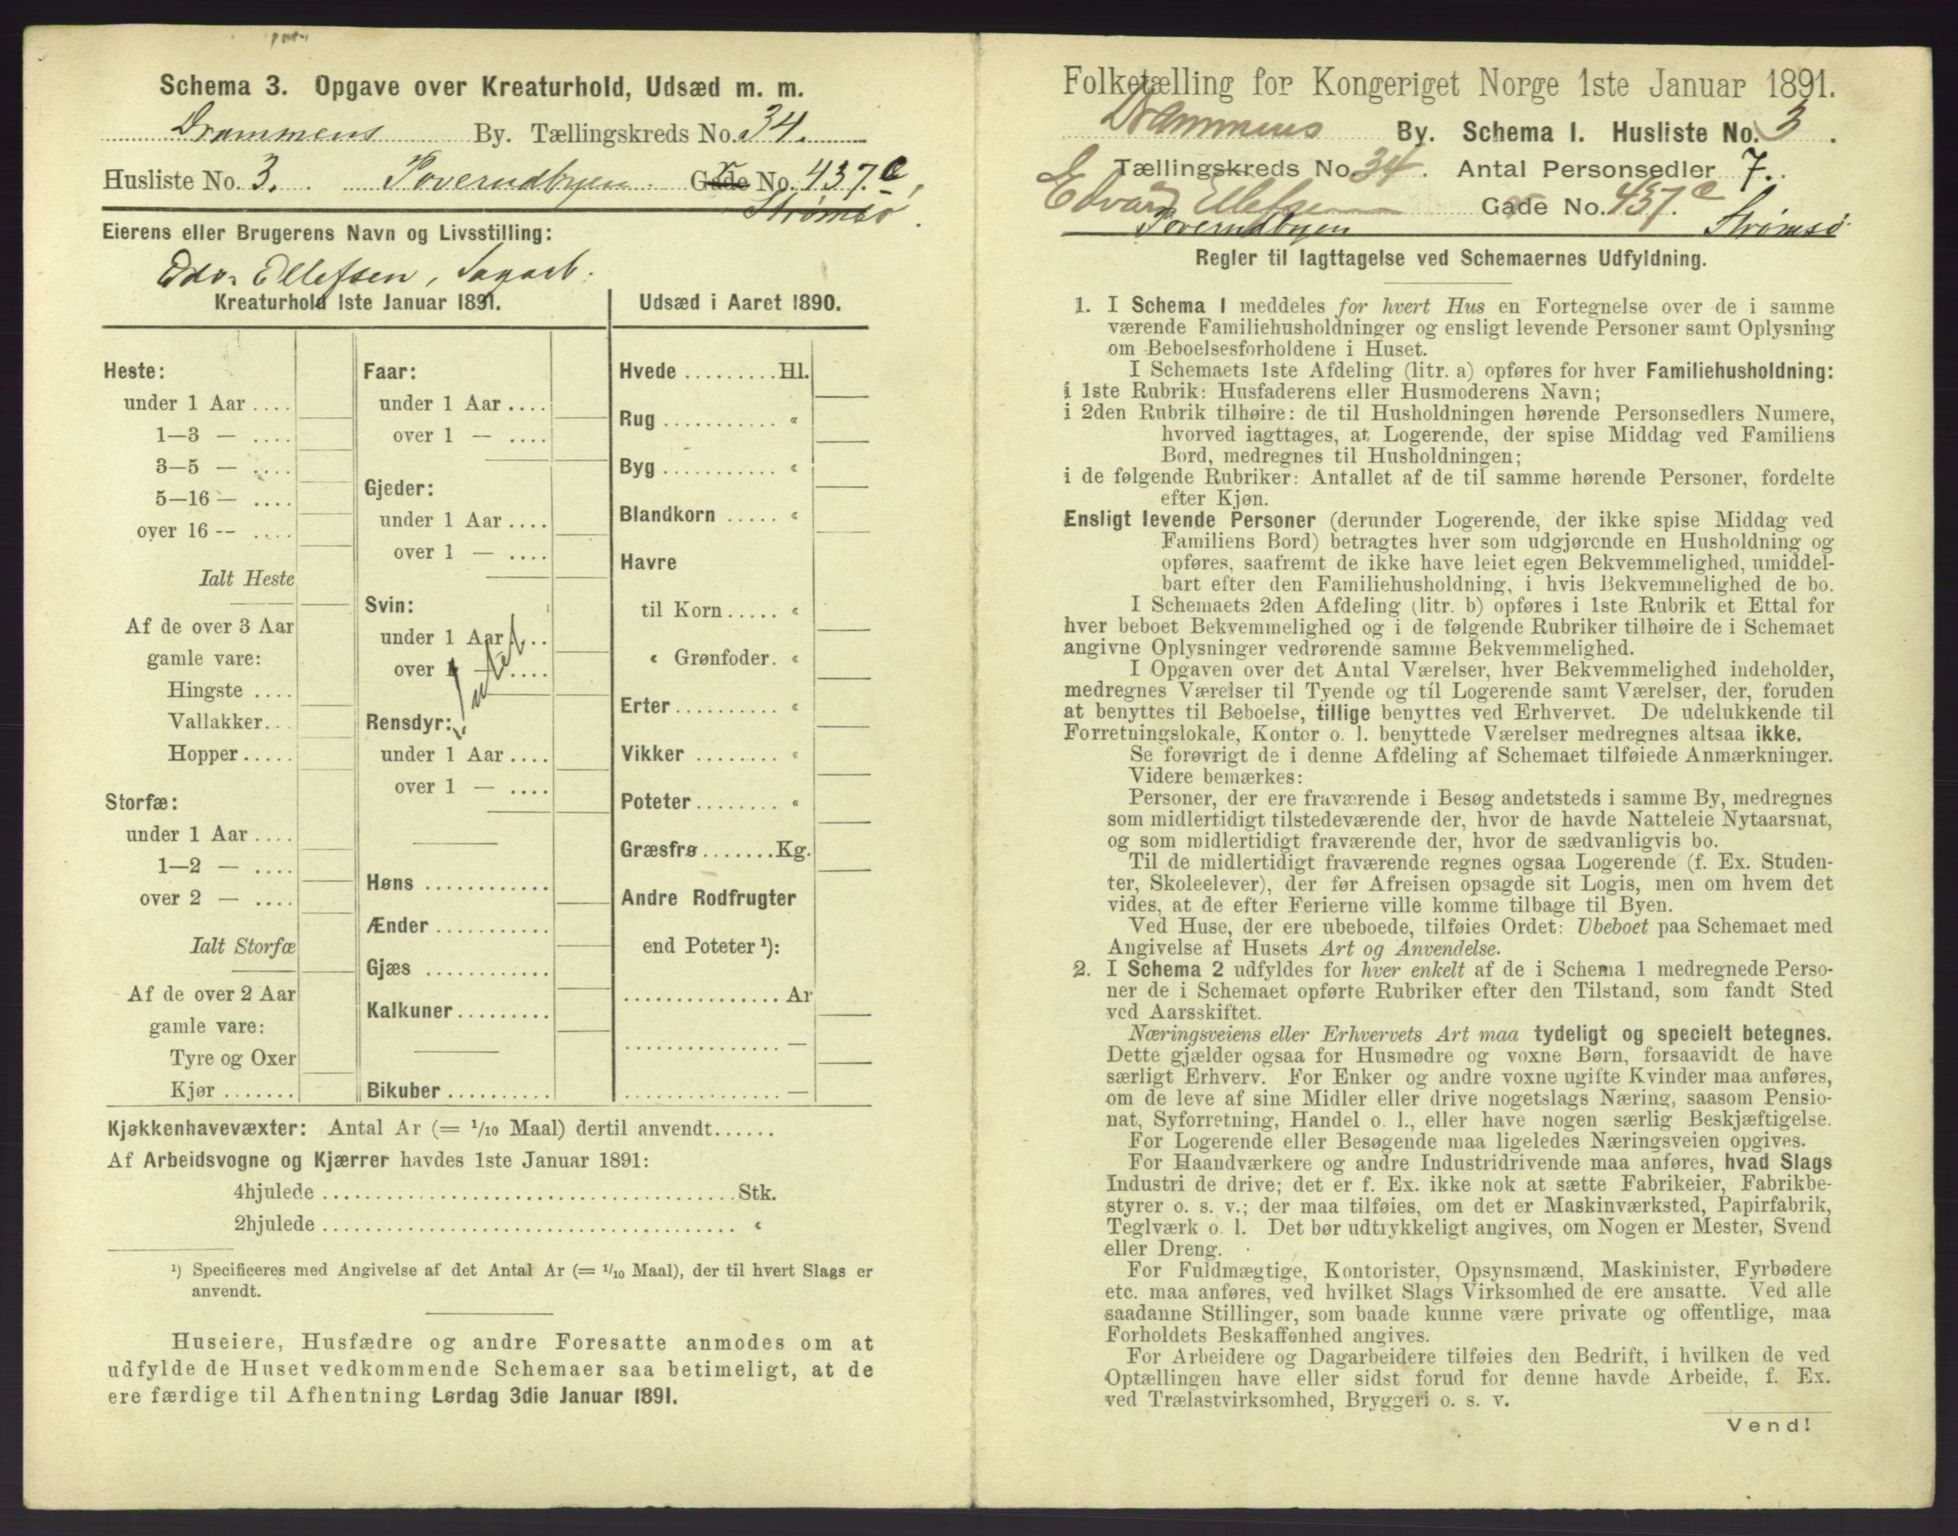 Schema 3. Opgave over Kreaturhold, Udsæd m. m.
Drammens By. Tællingskreds No. 34.
Husliste No. 3. Toverudbyen Gade No. 437.c,
Strømsø.
Eierens eller Brugerens Navn og Livsstilling:
Edv. Ellefsen, Sagarb.
Kreaturhold 1ste Januar 1891.
Heste:
under 1 Aar ....
1—3 — ....
3—5 — ....
5—16 — ....
over 16 — ....
Ialt Heste
Af de over 3 Aar
gamle vare:
Hingste ....
Vallakker...
Hopper.....
Storfæ:
under 1 Aar ....
1—2 — ....
over 2 — ....
Ialt Storfæ
Af de over 2 Aar
gamle vare:
Tyre og Oxer
Kjør .......
Faar:
under 1 Aar ....
over 1 — ....
Gjeder:
under 1 Aar ....
over 1 — ....
Svin:
under 1 Aar ....
over 1 — ....
Intet
Rensdyr:
under 1 Aar ....
over 1 — ....
Høns ............
Ænder ...........
Gjæs ............
Kalkuner.........
Bikuber..........
Udsæd i Aaret 1890.
Hvede .........Hl.
Rug ........... «
Byg ........... «
Blandkorn ..... «
Havre
til Korn ..... «
« Grønfoder. «
Erter.......... «
Vikker ........ «
Poteter........ «
Græsfrø.......Kg.
Andre Rodfrugter
end Poteter ¹):
...............Ar
............... —
............... —
Kjøkkenhavevæxter: Antal Ar (= 1/10 Maal) dertil anvendt......
Af Arbeidsvogne og Kjærrer havdes 1ste Januar 1891:
4hjulede .......................................Stk.
2hjulede ....................................... «
¹) Specificeres med Angivelse af det Antal Ar (= 1/10 Maal), der til hvert Slags er
anvendt.
Huseiere, Husfædre og andre Foresatte anmodes om at
udfylde de Huset vedkommende Schemaer saa betimeligt, at de
ere færdige til Afhentning Lørdag 3die Januar 1891.
Folketælling for Kongeriget Norge 1ste Januar 1891.
Drammens By. Schema I. Husliste No. 3.
Tællingskreds No. 34. Antal Personsedler 7.
Edvard Ellefsen Gade No. 437.c
Toverudbyen Strømsø
Regler til Iagttagelse ved Schemaernes Udfyldning.
1. I Schema 1 meddeles for hvert Hus en Fortegnelse over de i samme
værende Familiehusholdninger og ensligt levende Personer samt Oplysning
om Beboelsesforholdene i Huset.
I Schemaets 1ste Afdeling (litr. a) opføres for hver Familiehusholdning:
i 1ste Rubrik: Husfaderens eller Husmoderens Navn;
i 2den Rubrik tilhøire: de til Husholdningen hørende Personsedlers Numere,
hvorved iagttages, at Logerende, der spise Middag ved Familiens
Bord, medregnes til Husholdningen;
i de følgende Rubriker: Antallet af de til samme hørende Personer, fordelte
efter Kjøn.
Ensligt levende Personer (derunder Logerende, der ikke spise Middag ved
Familiens Bord) betragtes hver som udgjørende en Husholdning og
opføres, saafremt de ikke have leiet egen Bekvemmelighed, umiddel-
bart efter den Familiehusholdning, i hvis Bekvemmelighed de bo.
I Schemaets 2den Afdeling (litr. b) opføres i 1ste Rubrik et Ettal for
hver beboet Bekvemmelighed og i de følgende Rubriker tilhøire de i Schemaet
angivne Oplysninger vedrørende samme Bekvemmelighed.
I Opgaven over det Antal Værelser, hver Bekvemmelighed indeholder,
medregnes Værelser til Tyende og til Logerende samt Værelser, der, foruden
at benyttes til Beboelse, tillige benyttes ved Erhvervet. De udelukkende til
Forretningslokale, Kontor o. l. benyttede Værelser medregnes altsaa ikke.
Se forøvrigt de i denne Afdeling af Schemaet tilføiede Anmærkninger.
Videre bemærkes:
Personer, der ere fraværende i Besøg andetsteds i samme By, medregnes
som midlertidigt tilstedeværende der, hvor de havde Natteleie Nytaarsnat,
og som midlertidigt fraværende der, hvor de sædvanligvis bo.
Til de midlertidigt fraværende regnes ogsaa Logerende (f. Ex. Studen-
ter, Skoleelever), der før Afreisen opsagde sit Logis, men om hvem det
vides, at de efter Ferierne ville komme tilbage til Byen.
Ved Huse, der ere ubeboede, tilføies Ordet: Ubeboet paa Schemaet med
Angivelse af Husets Art og Anvendelse.
2. I Schema 2 udfyldes for hver enkelt af de i Schema 1 medregnede Perso-
ner de i Schemaet opførte Rubriker efter den Tilstand, som fandt Sted
ved Aarsskiftet.
Næringsveiens eller Erhvervets Art maa tydeligt og specielt betegnes.
Dette gjælder ogsaa for Husmødre og voxne Børn, forsaavidt de have
særligt Erhverv. For Enker og andre voxne ugifte Kvinder maa anføres,
om de leve af sine Midler eller drive nogetslags Næring, saasom Pensio-
nat, Syforretning, Handel o. l., eller have nogen særlig Beskjæftigelse.
For Logerende eller Besøgende maa ligeledes Næringsveien opgives.
For Haandværkere og andre Industridrivende maa anføres, hvad Slags
Industri de drive; det er f. Ex. ikke nok at sætte Fabrikeier, Fabrikbe-
styrer o. s. v.; der maa tilføies, om det er Maskinværksted, Papirfabrik,
Teglværk o. l. Det bør udtrykkeligt angives, om Nogen er Mester, Svend
eller Dreng.
For Fuldmægtige, Kontorister, Opsynsmænd, Maskinister, Fyrbødere
etc. maa anføres, ved hvilket Slags Virksomhed de ere ansatte. Ved alle
saadanne Stillinger, som baade kunne være private og offentlige, maa
Forholdets Beskaffenhed angives.
For Arbeidere og Dagarbeidere tilføies den Bedrift, i hvilken de ved
Optællingen have eller sidst forud for denne havde Arbeide, f. Ex.
ved Trælastvirksomhed, Bryggeri o. s. v.
Vend!